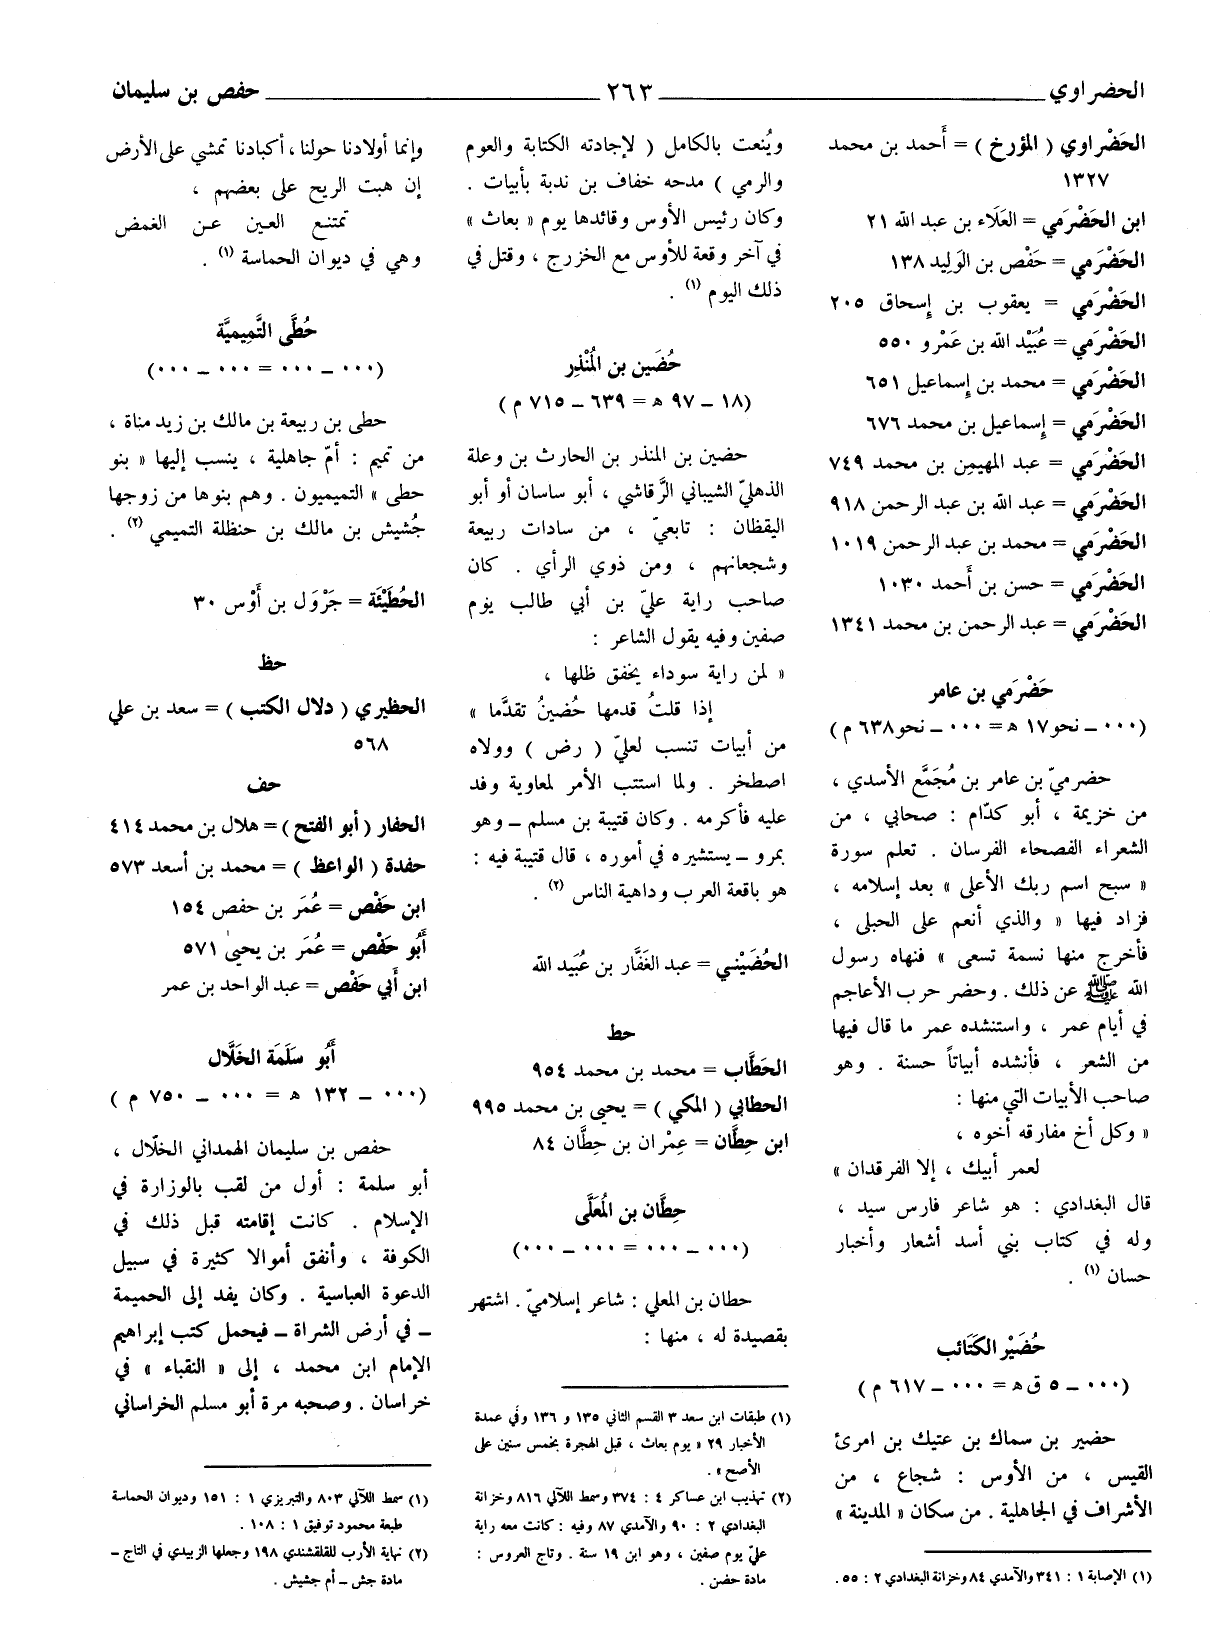 الحضراوي ٢٦٣ حفص بن سليمان
الحَضْراوي ( المؤرخ ) = أَحمد بن محمد
١٣٢٧
ابن الحَضْرَمي = العَلَاء بن عبد الله ٢١
الحَضْرَمي = حَفْص بن الوَلِيد ١٣٨
الحَضْرَمي = يعقوب بن إِسحاق ٢٠٥
الحَضْرَمي = عُبَيْد الله بن عَمْرو ٥٥٠
الحَضْرَمي = محمد بن إِسماعيل ٦٥١
الحَضْرَمي = إِسماعيل بن محمد ٦٧٦
الحَضْرَمي = عبد المهيمن بن محمد ٧٤٩
الحَضْرَمي = عبد الله بن عبد الرحمن ٩١٨
الحَضْرَمي = محمد بن عبد الرحمن ١٠١٩
الحَضْرَمي = حسن بن أَحمد ١٠٣٠
الحَضْرَمي = عبد الرحمن بن محمد ١٣٤١
حَضْرَمي بن عامر
(٠٠٠ ــ نحو ١٧ هـ = ٠٠٠ ــ نحو ٦٣٨ م)
حضرميّ بن عامر بن مُجَمَّع الأسدي ،
من خزيمة ، أبو كدّام : صحابي ، من
الشعراء الفصحاء الفرسان . تعلم سورة
« سبح اسم ربك الأعلى » بعد إسلامه ،
فزاد فيها « والذي أنعم على الحبلى ،
فأخرج منها نسمة تسعى » فنهاه رسول
الله ﷺ عن ذلك . وحضر حرب الأعاجم
في أيام عمر ، واستنشده عمر ما قال فيها
من الشعر ، فأنشده أبياتاً حسنة . وهو
صاحب الأبيات التي منها :
« وكل أخ مفارقه أخوه ،
لعمر أبيك ، إلا الفرقدان »
قال البغدادي : هو شاعر فارس سيد ،
وله في كتاب بني أسد أشعار وأخبار
حسان (١) .
حُضَيْر الكَتَائب
(٠٠٠ ــ ٥ ق هـ = ٠٠٠ ــ ٦١٧ م)
حضير بن سماك بن عتيك بن امرئ
القيس ، من الأوس : شجاع ، من
الأشراف في الجاهلية . من سكان « المدينة »
(١) الإصابة ١ : ٣٤١ والآمدي ٨٤ وخزانة البغدادي ٢ : ٥٥ .
ويُنعت بالكامل ( لإجادته الكتابة والعوم
والرمي ) مدحه خفاف بن ندبة بأبيات .
وكان رئيس الأوس وقائدها يوم « بعاث »
في آخر وقعة للأوس مع الخزرج ، وقتل في
ذلك اليوم (١) .
حُضَين بن المُنْذِر
(١٨ ــ ٩٧ هـ = ٦٣٩ ــ ٧١٥ م)
حضين بن المنذر بن الحارث بن وعلة
الذهليّ الشيباني الرَّقاشي ، أبو ساسان أو أبو
اليقظان : تابعيّ ، من سادات ربيعة
وشجعانهم ، ومن ذوي الرأي . كان
صاحب راية عليّ بن أبي طالب يوم
صفين وفيه يقول الشاعر :
« لمن راية سوداء يخفق ظلها ،
إذا قلتُ قدمها حُضينُ تقدَّما »
من أبيات تنسب لعليّ ( رض ) وولاه
اصطخر . ولما استتب الأمر لمعاوية وفد
عليه فأكرمه . وكان قتيبة بن مسلم ــ وهو
بمرو ــ يستشيره في أموره ، قال قتيبة فيه :
هو باقعة العرب وداهية الناس (٢) .
الحُضَيْني = عبد الغَفَّار بن عُبَيد الله
حط
الحَطَّاب = محمد بن محمد ٩٥٤
الحطابي ( المكي ) = يحيى بن محمد ٩٩٥
ابن حِطَّان = عِمْران بن حِطَّان ٨٤
حِطَّان بن المُعَلَّى
(٠٠٠ ــ ٠٠٠ = ٠٠٠ ــ ٠٠٠)
حطان بن المعلي : شاعر إسلاميّ . اشتهر
بقصيدة له ، منها :
(١) طبقات ابن سعد ٣ القسم الثاني ١٣٥ و ١٣٦ وفي عمدة
الأخبار ٢٩ « يوم بعاث ، قبل الهجرة بخمس سنين على
الأصح » .
(٢) تهذيب ابن عساكر ٤ : ٣٧٤ وسمط اللآلي ٨١٦ وخزانة
البغدادي ٢ : ٩٠ والآمدي ٨٧ وفيه : كانت معه راية
عليّ يوم صفين ، وهو ابن ١٩ سنة . وتاج العروس :
مادة حضن .
وإنما أولادنا حولنا ، أكبادنا تمشي على الأرض
إن هبت الريح على بعضهم ،
تمتنع العين عن الغمض
وهي في ديوان الحماسة (١) .
حُطَّى التَّمِيميَّة
(٠٠٠ ــ ٠٠٠ = ٠٠٠ ــ ٠٠٠)
حطى بن ربيعة بن مالك بن زيد مناة ،
من تميم : أمّ جاهلية ، ينسب إليها « بنو
حطى » التميميون . وهم بنوها من زوجها
جُشيش بن مالك بن حنظلة التميمي (٢) .
الحُطَيْئَة = جَرْوَل بن أَوْس ٣٠
حظ
الحظيري ( دلال الكتب ) = سعد بن علي
٥٦٨
حف
الحفار ( أبو الفتح ) = هلال بن محمد ٤١٤
حفدة ( الواعظ ) = محمد بن أسعد ٥٧٣
ابن حَفْص = عُمَر بن حفص ١٥٤
أَبُو حَفْص = عُمَر بن يحيىٰ ٥٧١
ابن أَبي حَفْص = عبد الواحد بن عمر
أَبُو سَلَمَة الخَلَّال
(٠٠٠ ــ ١٣٢ هـ = ٠٠٠ ــ ٧٥٠ م)
حفص بن سليمان الهمداني الخلّال ،
أبو سلمة : أول من لقب بالوزارة في
الإسلام . كانت إقامته قبل ذلك في
الكوفة ، وأنفق أموالا كثيرة في سبيل
الدعوة العباسية . وكان يفد إلى الحميمة
ــ في أرض الشراة ــ فيحمل كتب إبراهيم
الإمام ابن محمد ، إلى « النقباء » في
خراسان . وصحبه مرة أبو مسلم الخراساني
(١) سمط اللآلي ٨٠٣ والتبريزي ١ : ١٥١ وديوان الحماسة
طبعة محمود توفيق ١ : ١٠٨ .
(٢) نهاية الأرب للقلقشندي ١٩٨ وجعلها الزبيدي في التاج ــ
مادة جش ــ أم جشيش .